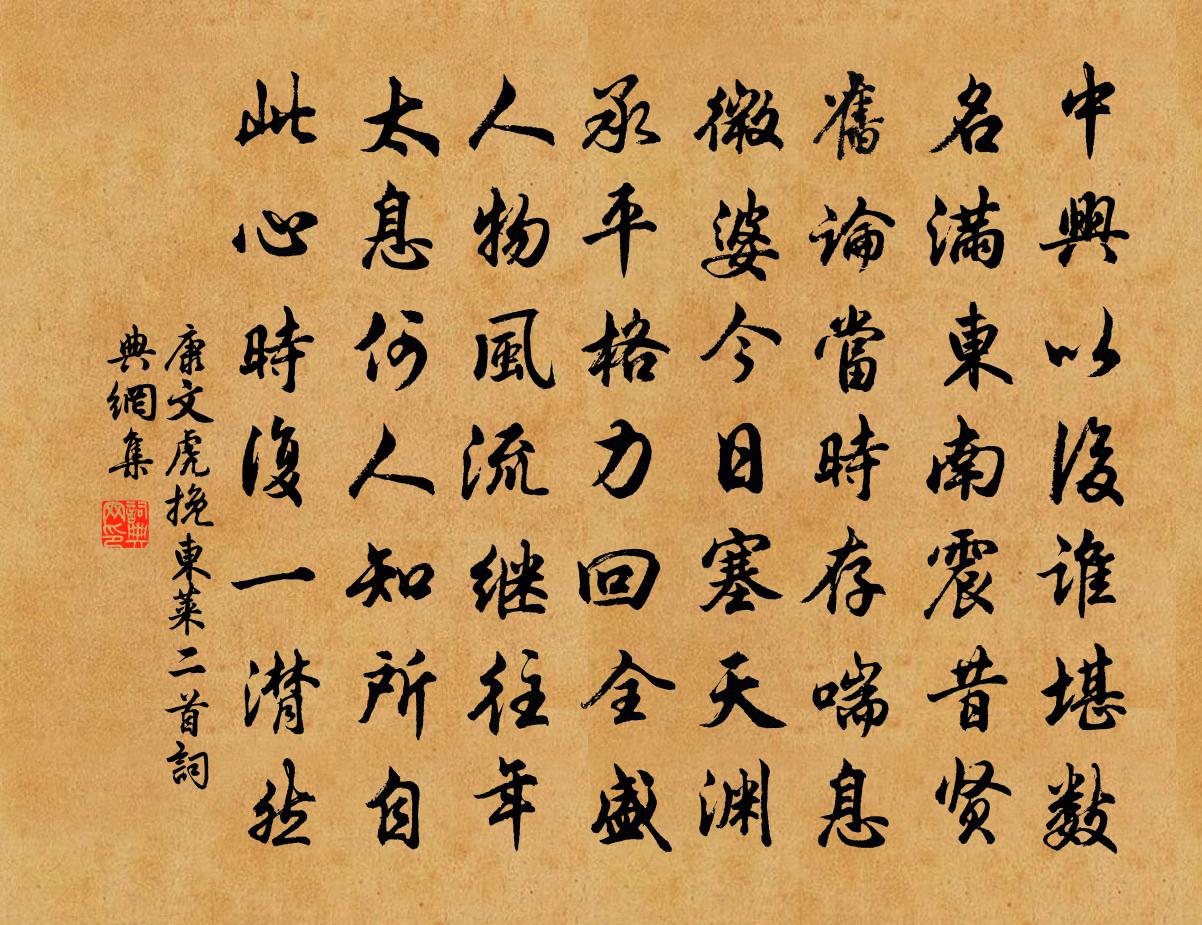 中興以後誰堪數
名滿東南震昔贤
舊論當時存喘息
微婆今日塞天渊
承平格力回全盛
人物風流继往年
太息何人知所自
此心時復一潸然
康文虎挽東莱二首詞
典網集
詞典网印